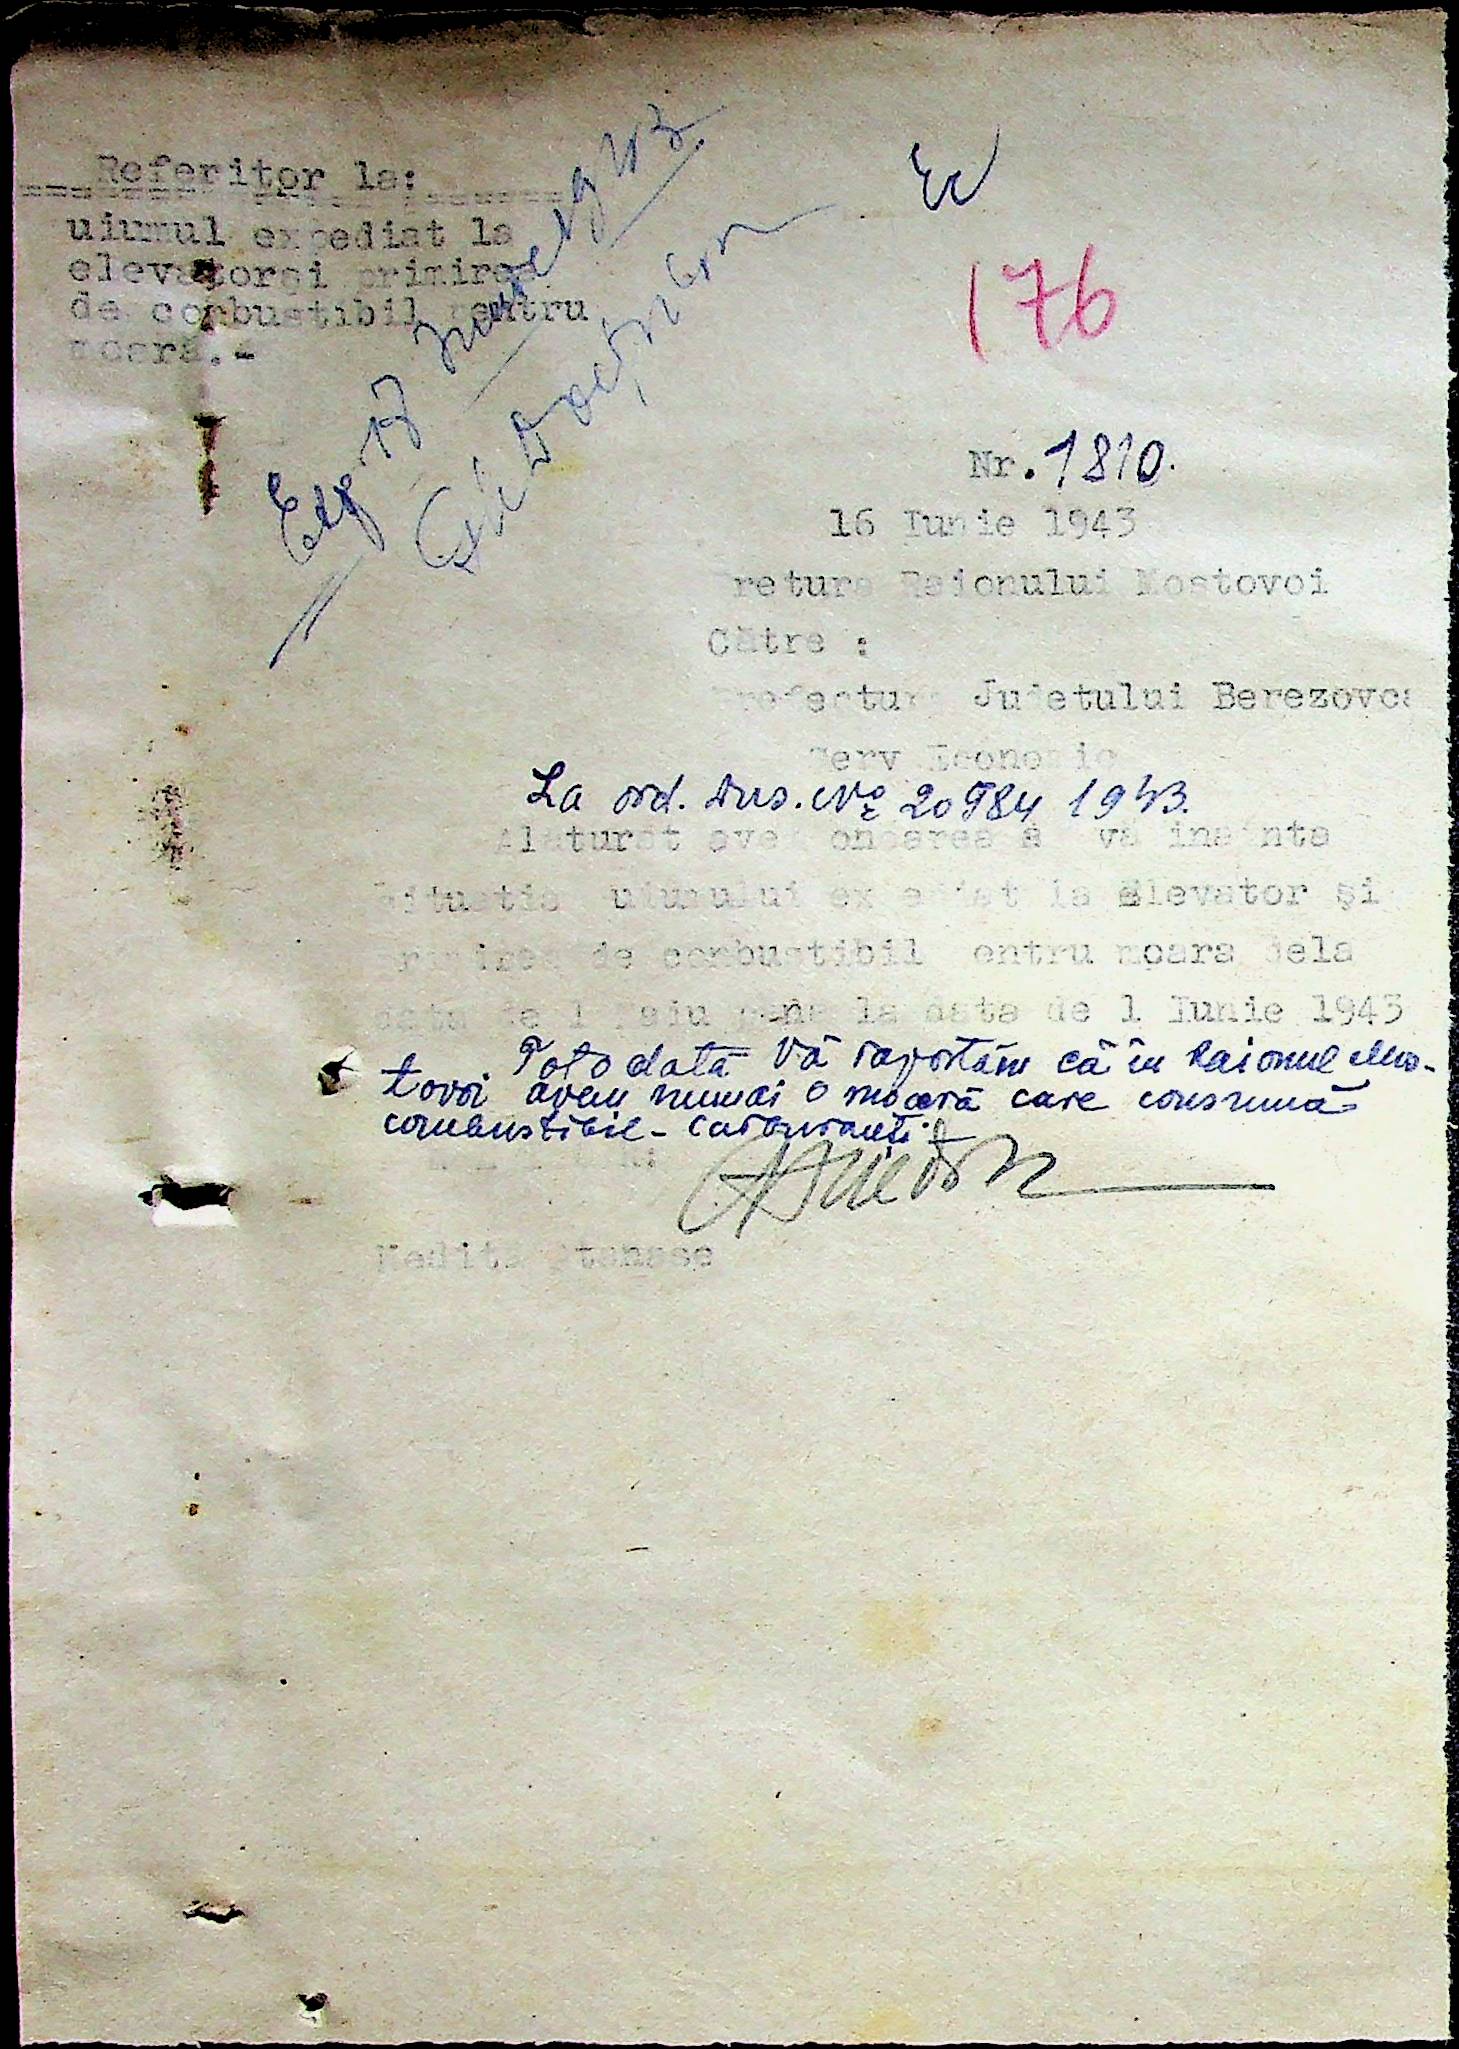 Referitor la:
uiumul expediat la
elevatorși primirea
de combustibil pentru
moară.-
Exp 17 Iunie 1943
Ec
176
Nr. 1810.
16 Iunie 1943
Pretura Raionului Mostovoi
Către :
Prefectura Județului Berezovca
Serv Economic
La ord. Dvs. No 20984 1943.
Alaturat avem onoarea a vă inainta
situatia uiumului expediat la elevator și
primirea de combustibil pentru moara dela
data de 1 Maiu pana la data de 1 Iunie 1943
Totodată Vă raportăm că în Raionul Mos-
tovoi avem numai o moară care consumă
combustibil - carburanți.
Nedita Atanase